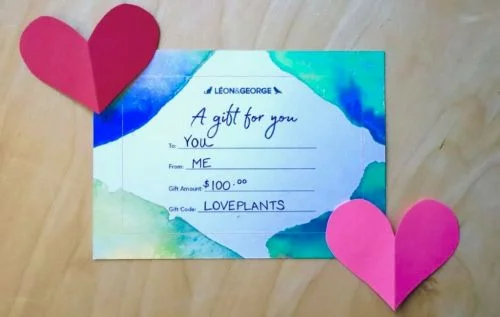 LÉON&GEORGE
A gift for you
To: YOU
From: ME
Gift Amount: $100.00
Gift Code: LOVEPLANTS